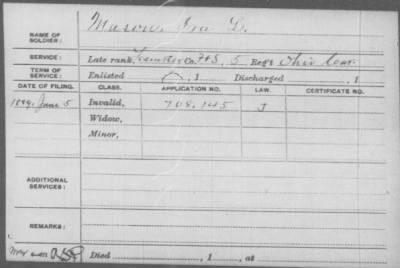 NAME OF SOLDIER: Mason, Ira D.
SERVICE: Late rank, Teamster Co. F&S, 5 Reg't Ohio Cav.
TERM OF SERVICE: Enlisted , 1 Discharged , 1
DATE OF FILING. CLASS. APPLICATION NO. LAW. CERTIFICATE NO.
June 5 Invalid, 708.145 J
Widow,
Minor,
ADDITIONAL SERVICES:
REMARKS:
Died , 1 , at